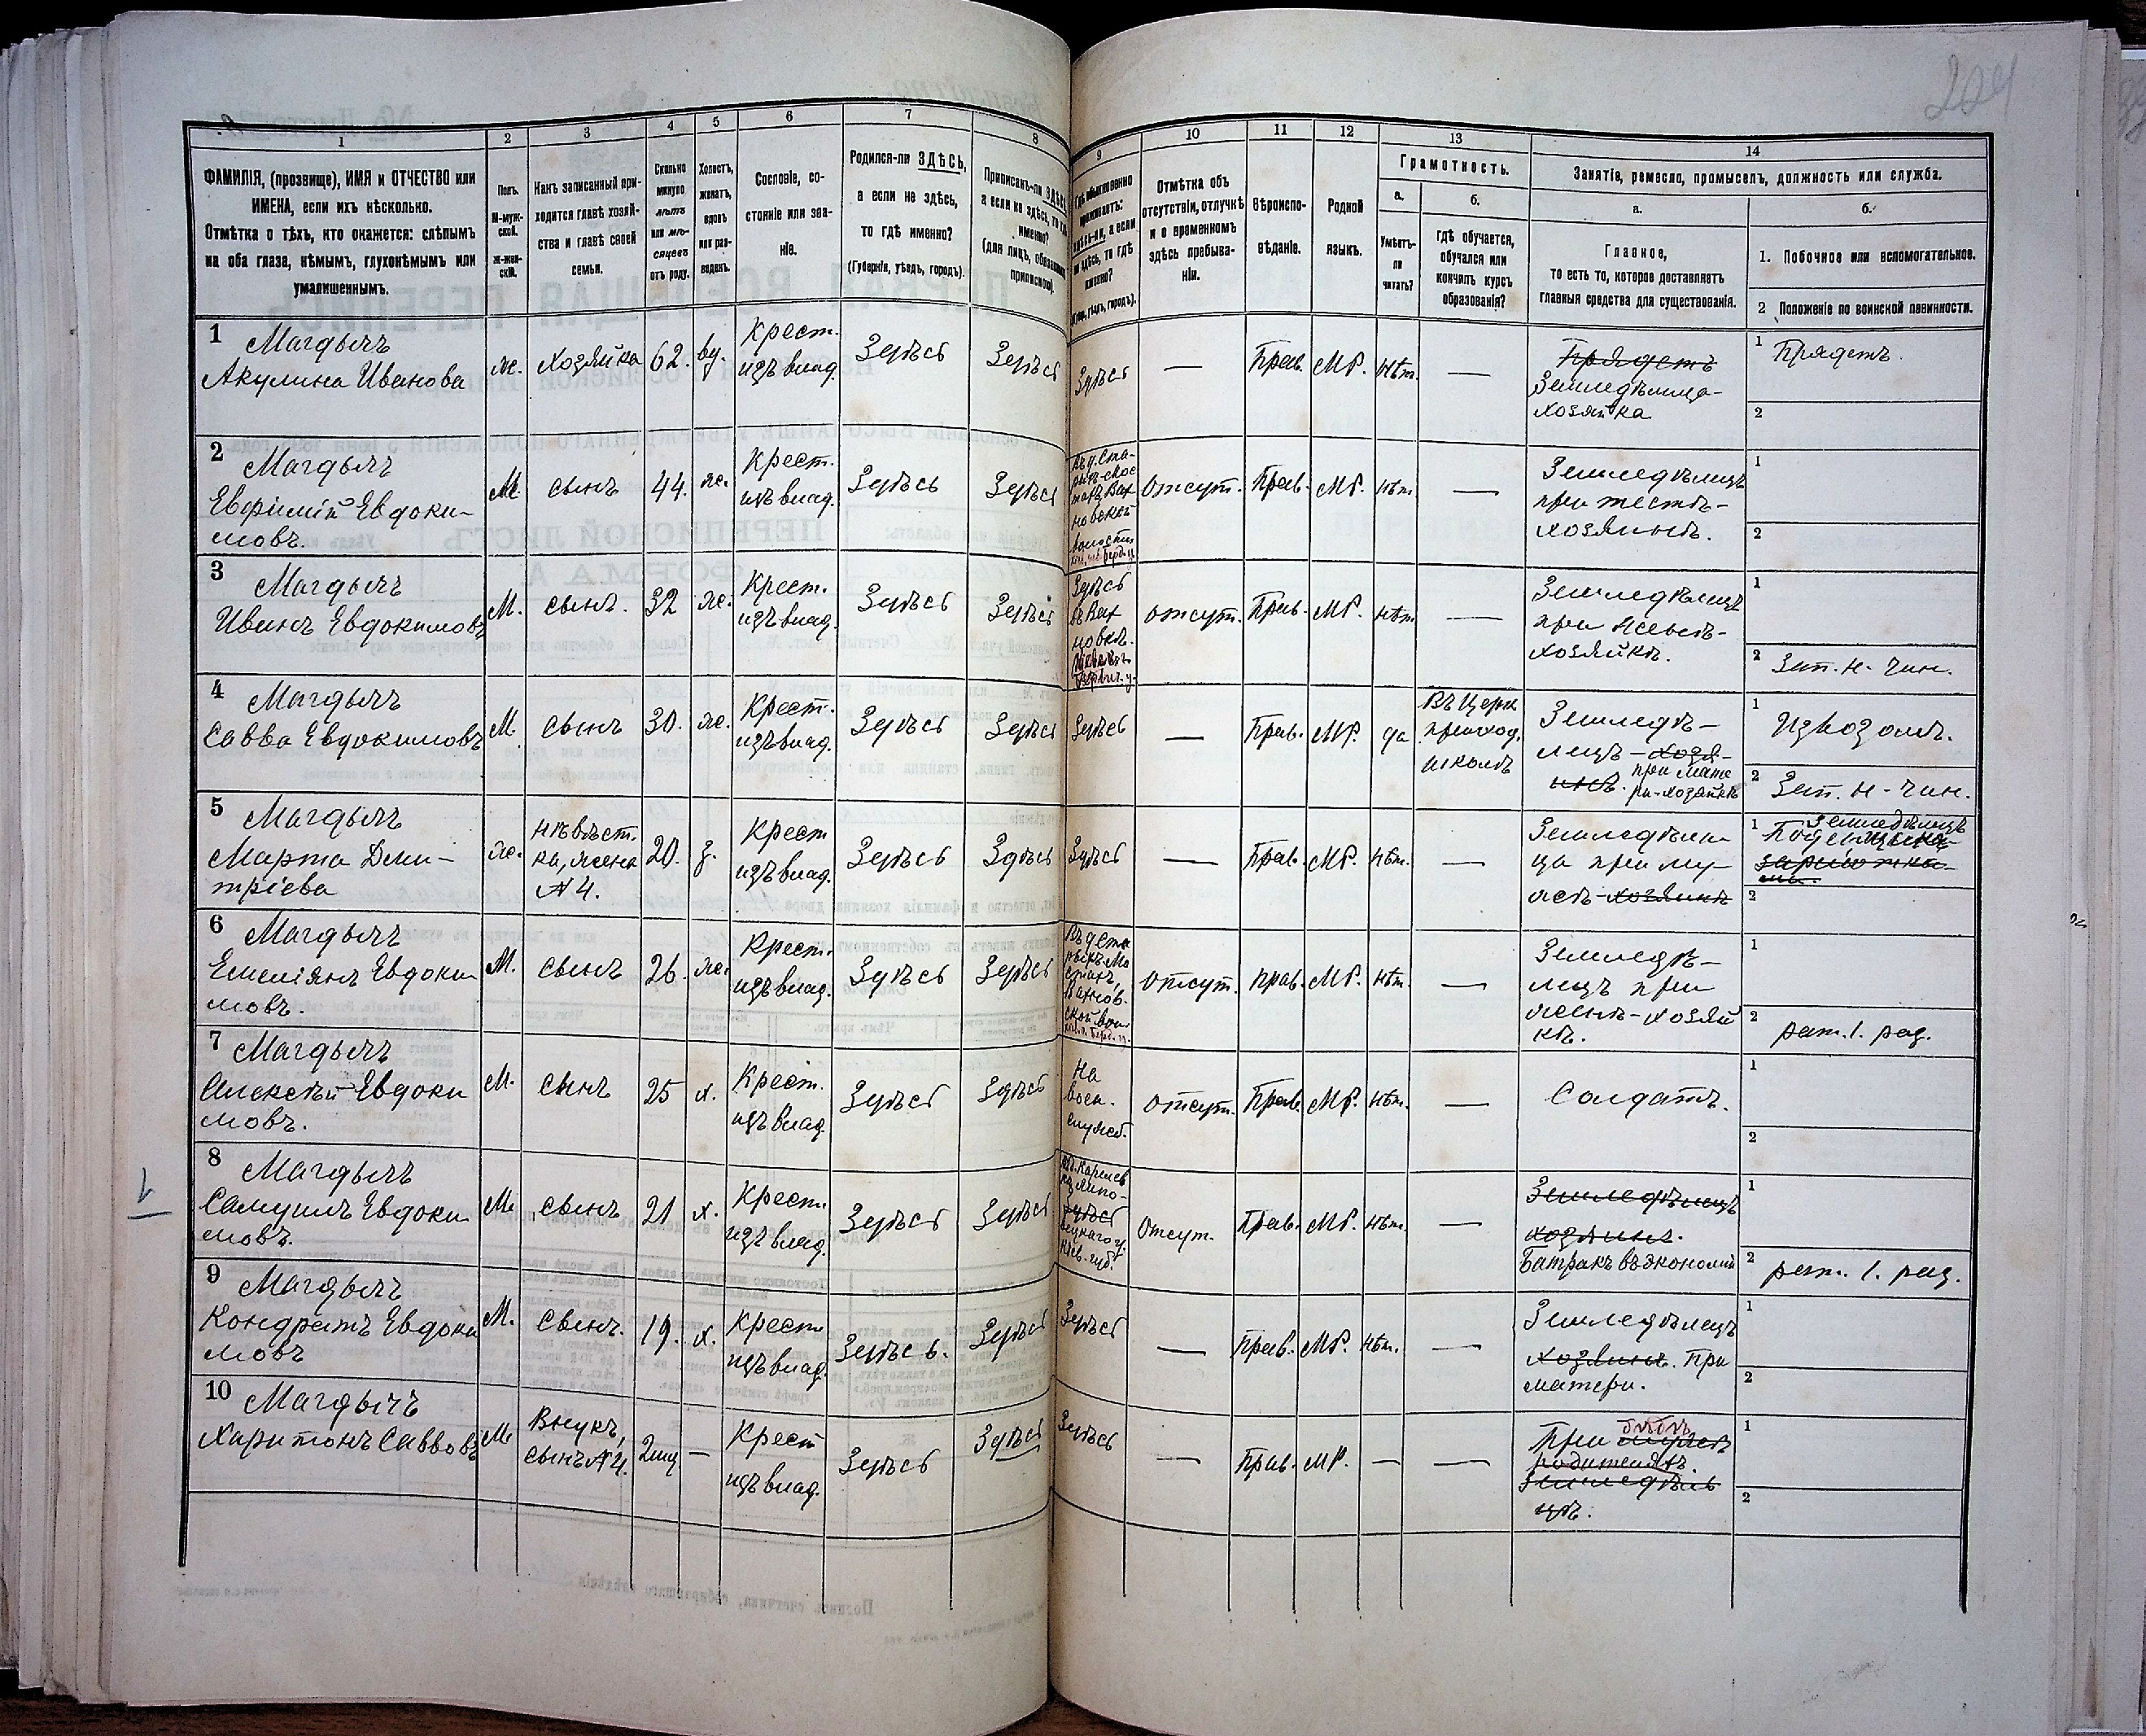 204
1
ФАМИЛІЯ, (прозвище), ИМЯ и ОТЧЕСТВО или
ИМЕНА, если ихъ нѣсколько.
Отмѣтка о тѣхъ, кто окажется: слѣпымъ
на оба глаза, нѣмымъ, глухонѣмымъ или
умалишеннымъ.
2
Полъ.
М-муж-
ской.
Ж-жен-
скій.
3
Какъ записанный при-
ходится главѣ хозяй-
ства и главѣ своей
семьи.
4
Сколько
минуло
лѣтъ
или мѣ-
сяцевъ
отъ роду.
5
Холостъ,
женатъ,
вдовъ
или раз-
веденъ.
6
Сословіе, со-
стояніе или зва-
ніе.
7
Родился-ли ЗДѢСЬ,
а если не здѣсь,
то гдѣ именно?
(Губернія, уѣздъ, городъ).
8
Приписанъ-ли ЗДѢСЬ,
а если не здѣсь, то гдѣ
именно?
(для лицъ, обязанныхъ
припискою).
9
Гдѣ обыкновенно
проживаетъ:
здѣсь-ли, а если
не здѣсь, то гдѣ
именно?
10
Отмѣтка объ
отсутствіи, отлучкѣ
и о временномъ
здѣсь пребыва-
ніи.
11
Вѣроиспо-
вѣданіе.
12
Родной
языкъ.
13
Грамотность.
а.
Умѣетъ-
ли
читать?
б.
Гдѣ обучается,
обучался или
кончилъ курсъ
образованія?
14
Занятіе, ремесло, промыселъ, должность или служба.
а.
Главное,
то есть то, которое доставляетъ
главныя средства для существованія.
б.
1. Побочное или вспомогательное.
2 Положеніе по воинской повинности.
1 Магдычъ
Акулина Иванова
ж.
Хозяйка
62.
вд.
Крест.
изъ влад.
Здѣсь
Здѣсь
Здѣсь
—
Прав.
МР.
нѣт.
—
Прядетъ
Земледѣлица-
хозяйка
1 Прядетъ.
2
2 Магдычъ
Евфимій Евдоки-
мовъ.
М.
сынъ
44.
ж.
Крест.
изъ влад.
Здѣсь
Здѣсь
Въ д. Ста-
новской
волости
Отсут.
Прав.
МР.
нѣт.
—
Земледѣлецъ
при тестѣ-
хозяинѣ.
1
2
3 Магдычъ
Иванъ Евдокимовъ
М.
сынъ.
32
ж.
Крест.
изъ влад.
Здѣсь
Здѣсь
Здѣсь
въ Вах
новкѣ.
отсут.
Прав.
МР.
нѣт
—
Земледѣлецъ
при женѣ-
хозяйкѣ.
1
2 Зап. н-чин.
4 Магдычъ
Савва Евдокимовъ
М.
сынъ
30.
ж.
Крест.
изъ влад.
Здѣсь
Здѣсь
Здѣсь
—
Прав.
МР.
да
Въ церк
приход.
школѣ
Земледѣ-
лецъ-хозя-
инъ. при мате
ри-хозяйкѣ
1 Извозомъ.
2 Зап. н-чин.
5 Магдычъ
Марта Дми-
тріева
ж.
невѣст.
ка, жена
№4.
20.
з.
Крест
изъ влад.
Здѣсь
Здѣсь
Здѣсь
—
Прав.
МР.
нѣт.
—
Земледѣли
ца при му-
жѣ-хозяинѣ
1
2
6 Магдычъ
Емеліянъ Евдоки
мовъ.
М.
сынъ
26.
ж.
Крест.
изъ влад.
Здѣсь
Здѣсь
Вахнов-
ской вол.
отсут.
прав.
МР.
нѣт.
—
Земледѣ-
лецъ при
женѣ-хозяй
кѣ.
1
2 рат. 1. раз.
7 Магдычъ
Алексѣй Евдоки
мовъ.
М.
сынъ
25
х.
Крест.
изъ влад.
Здѣсь
Здѣсь
На
воен.
служб.
отсут.
Прав.
МР.
нѣт.
—
Солдатъ.
1
2
8 Магдычъ
Самуилъ Евдоки
мовъ.
М.
сынъ
21
х.
Крест.
изъ влад.
Здѣсь
Здѣсь
Здѣсь
Кіев. губ.
Отсут.
Прав.
МР.
нѣт.
—
Земледѣлецъ
хозяинъ.
Батракъ въ экономіи
1
2 рат. 1. раз.
9 Магдычъ
Кондратъ Евдоки
мовъ
М.
сынъ.
19.
х.
Крест
изъ влад.
Здѣсь.
Здѣсь
Здѣсь
—
прав.
МР.
нѣт.
—
Земледѣлецъ
хозяинъ. При
матери.
1
2
10 Магдычъ
Харитонъ Саввовъ
М
Внукъ,
сынъ №4.
2мц.
—
Крест
изъ влад.
Здѣсь
Здѣсь
Здѣсь
—
Прав.
МР.
—
—
При
родителяхъ.
Земледѣль
цѣ.
1
2